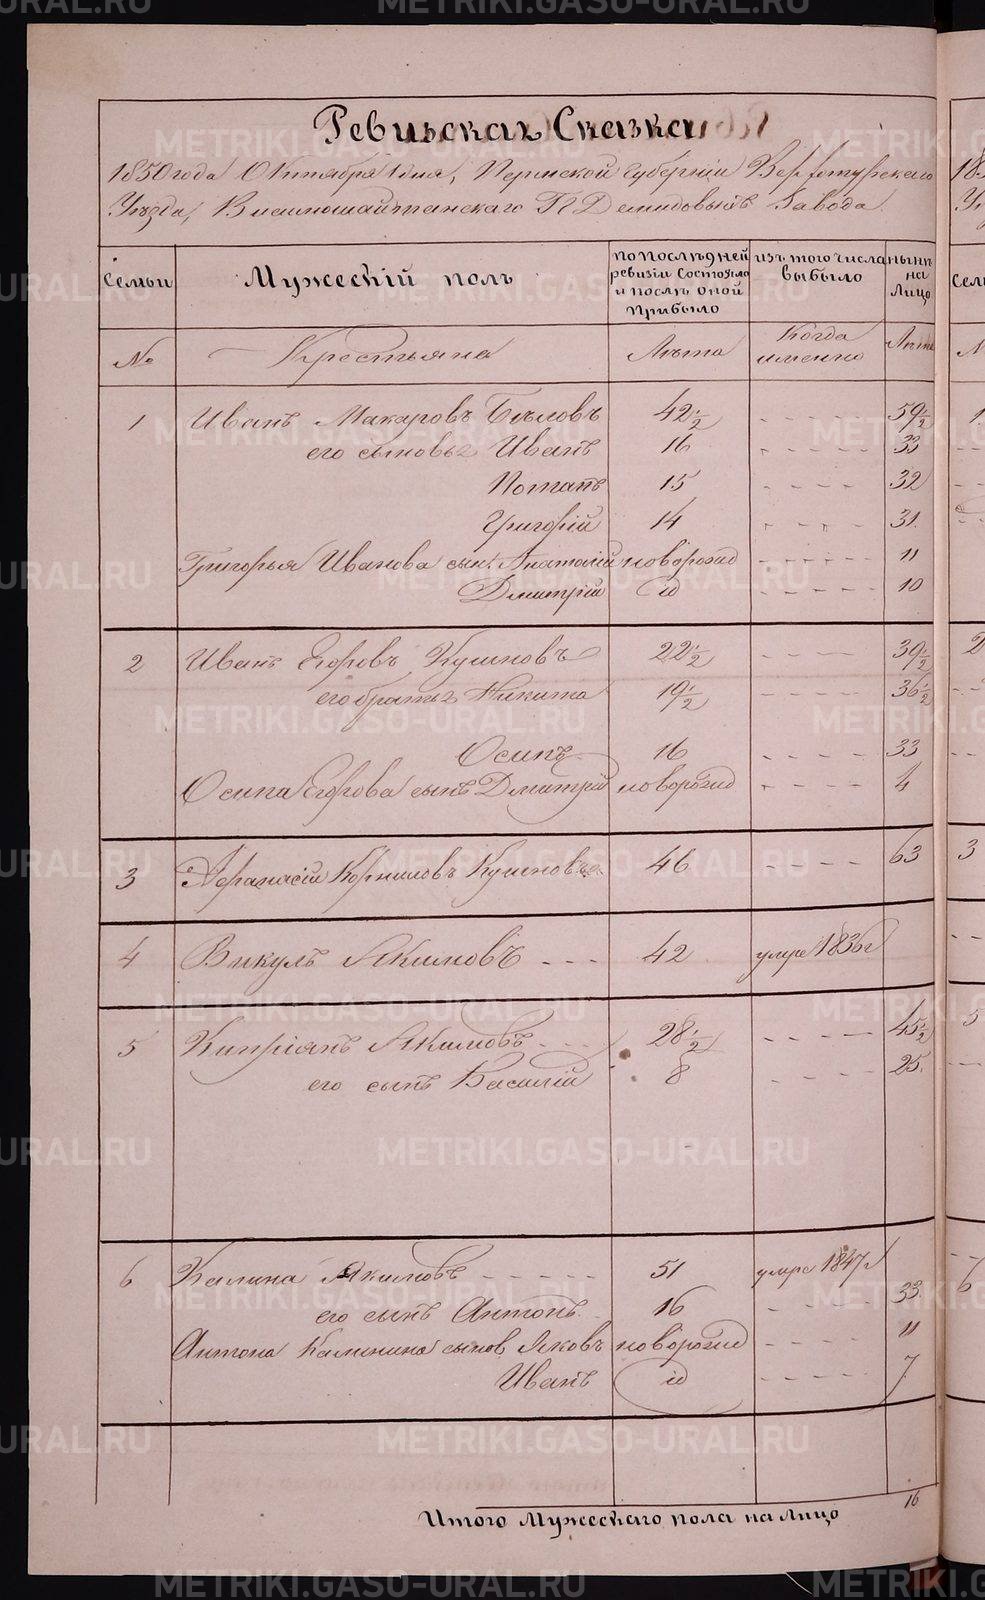 Ревизская Сказка
1850 года Октября дня, Пермской Губернии Верхотурскаго
Уѣзда, Висимошайтанскаго П Демидовыхъ Завода.
Семьи
Мужескій полъ
по послѣдней ревизіи состояло и послѣ оной прибыло
изъ того числа выбыло
нынѣ на лицо
№
Крестьяна
Лѣта
Когда именно
Лѣта
1 Иванъ Макаровъ Бѣловъ 42½ - - - - 59½
его сыновья Иванъ 16 - - - - 33
Потапъ 15 - - - - 32
Григорій 14 - - - - 31.
Григорья Иванова сын. Анатолій новорожд - - - - 11
Дмитрій id - - - - 10
2 Иванъ Егоровъ 22½ - - - - 39½
его братья Никита 19½ - - - - 36½
Осипъ 16 - - - - 33
Осипа Егорова сынъ Дмитрій новорожд - - - - 4
3 Афанасій Корниловъ 46 - - - - 63
4 Викулъ Якимовъ - - - 42 умре 1836 г
5 Кипріянъ Якимовъ - - - 28½ - - - - 45½
его сынъ Василій 8 - - - 25.
6 Калина Якимовъ - - - - - 51 умре 1847 г
его сынъ Антонъ 16 - - - - 33.
Антона Калинина сынов Яковъ новорожд - - - - 11
Иванъ id - - - - 7
16
Итого Мужескаго пола на лицо
METRIKI.GASO-URAL.RU